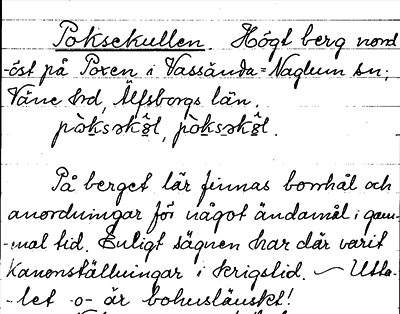 Poksekullen. Högt berg nord
-öst på Poxen i Vassända=Naglum sn;
Väne hrd, Älfsborgs län.
På berget lär finnas borrhål och
anordningar för något ändamål i gam-
-mal tid. Enligt sägnen har där varit
Kanonställningar i krigstid. ~ Utta-
-let -o- är bohuslänskt!